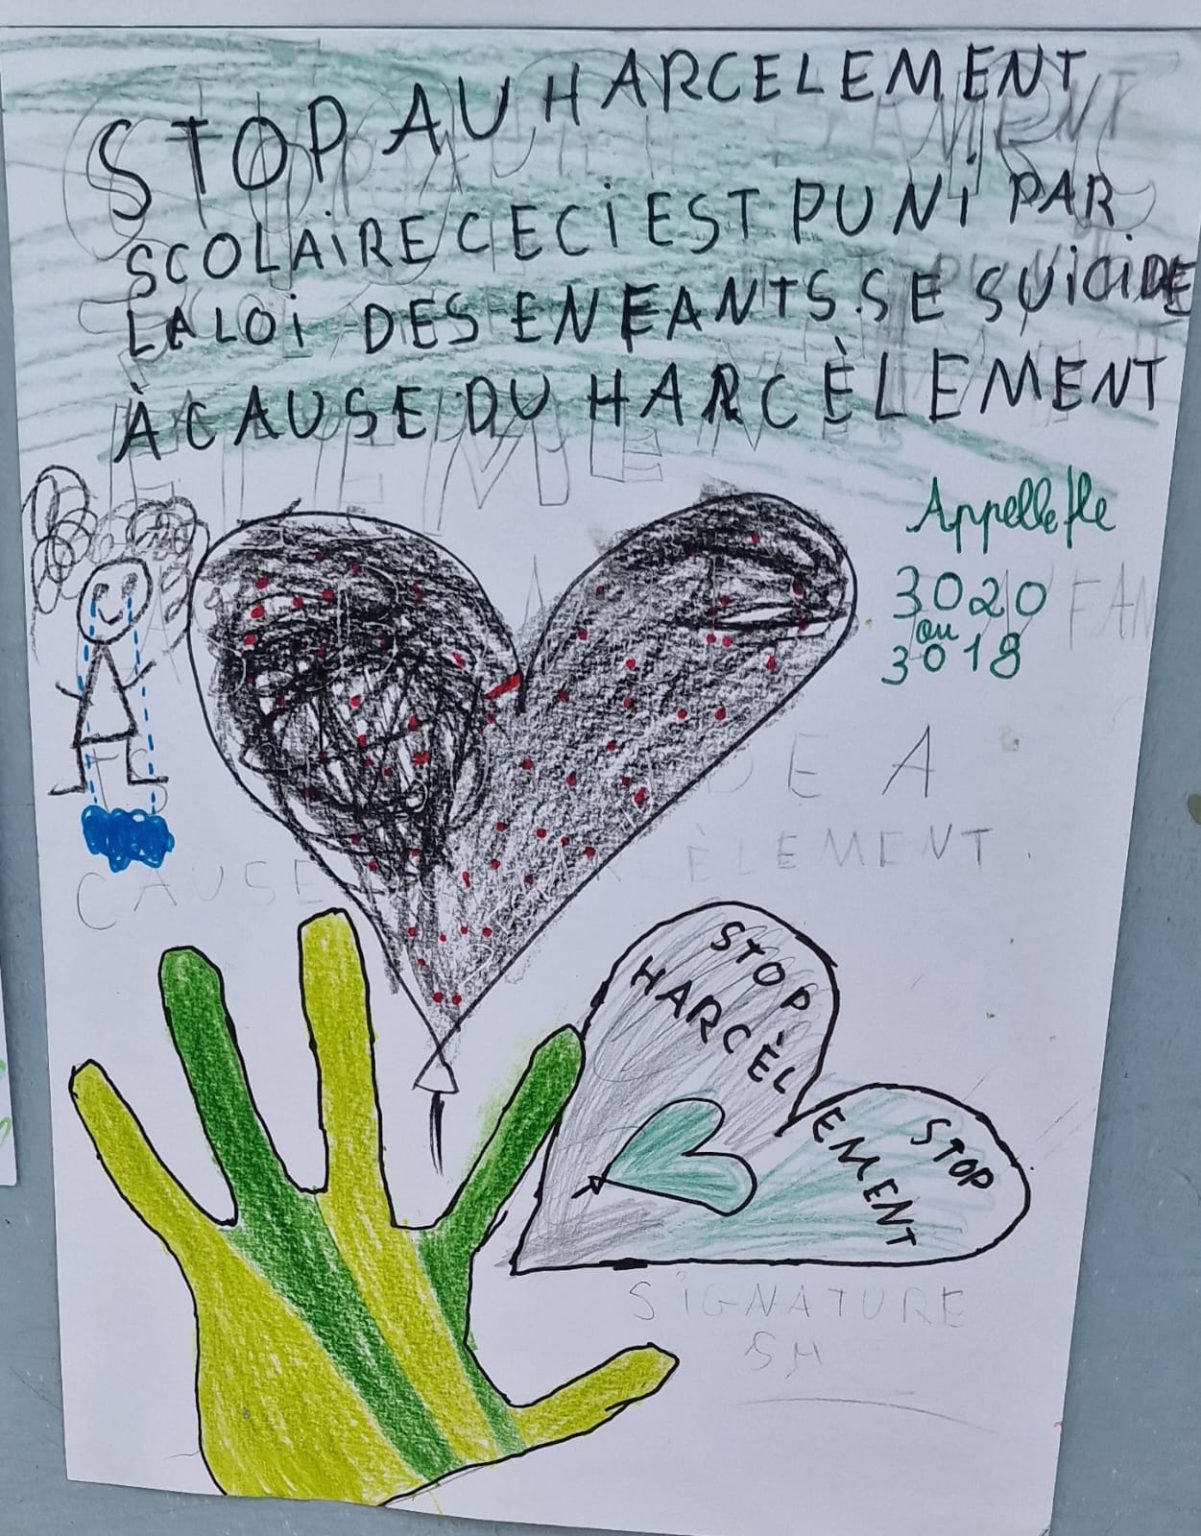 STOP AU HARCELEMENT
SCOLAIRE CECI EST PUNI PAR
LA LOI DES ENFANTS SE SUICIDE
À CAUSE DU HARCÈLEMENT
Appelle le
3020
ou
3018
DE A
CAUSE
ÈLEMENT
STOP
HARCÈL
EMENT
STOP
SIGNATURE
SM